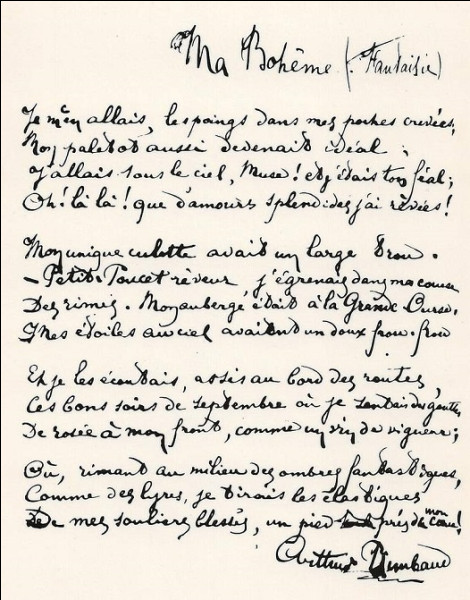 Ma Bohême (: Fantaisie)
Je m'en allais, les poings dans mes poches crevées,
Mon paletot aussi devenait idéal ;
J'allais sous le ciel, Muse ! et j'étais ton féal ;
Oh ! là là ! que d'amours splendides j'ai rêvées !
Mon unique culotte avait un large trou.
– Petit-Poucet rêveur, j'égrenais dans ma course
Des rimes. Mon auberge était à la Grande-Ourse.
Mes étoiles au ciel avaient un doux frou-frou
Et je les écoutais, assis au bord des routes,
Ces bons soirs de septembre où je sentais des gouttes
De rosée à mon front, comme un vin de vigueur ;
Où, rimant au milieu des ombres fantastiques,
Comme des lyres, je tirais les élastiques
De mes souliers blessés, un pied près de mon cœur !
Arthur Rimbaud